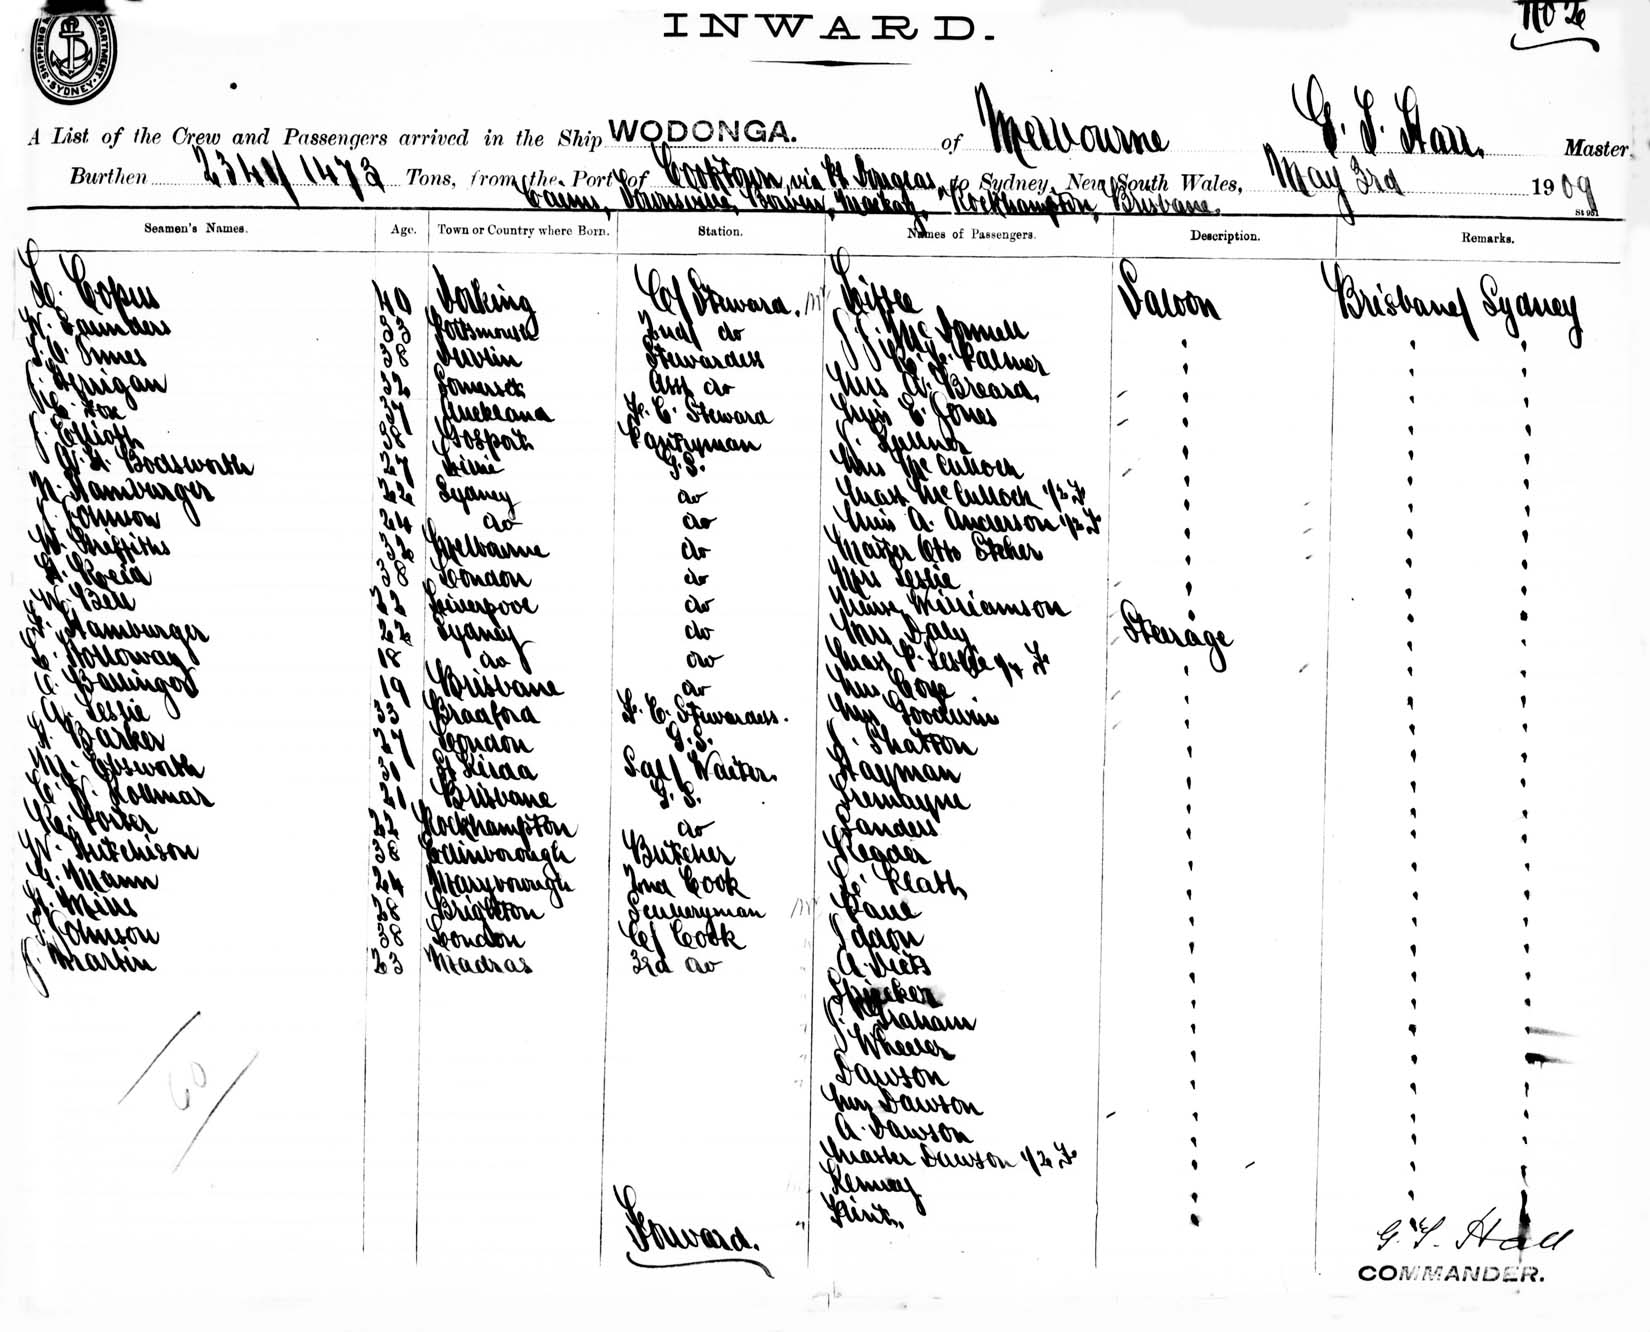 INWARD.
No 2
SHIPPING DEPARTMENT. SYDNEY
A List of the Crew and Passengers arrived in the Ship WODONGA. of Melbourne G. S. Hall. Master,
Burthen 2341/1473 Tons, from the Port of Cooktown, via Pt Douglas, to Sydney, New South Wales, May 3rd 1909
Cairns, Townsville, Bowen, Mackay, Rockhampton, Brisbane.
Seamen's Names. Age. Town or Country where Born. Station. Names of Passengers. Description. Remarks.
Copus 40 Dorking C/ Steward. Little Saloon Brisbane/ Sydney
W. Saunders 33 Portsmouth 2nd/ do McDonnell
Innes 38 Dublin Stewardess Palmer
J. Kerrigan 32 Somerset Asst do Mrs A. Breard
Fox 37 Auckland F. C. Steward Miss E. Jones
J. Elliott 38 Gosport Pantryman
Bodsworth 27 G.S. Mrs McCulloch
N. Hamburger 22 Sydney do Mast McCullock 1/2 F
J. Johnson 24 do do Miss A. Anderson 1/2 F
W. Griffiths 32 Melbourne do Master Otto Steher
H. Reid 38 London do Mrs Leslie
W. Bell 22 Liverpool do Williamson
Hamburger 22 Sydney do Mrs Daly Steerage
Holloway 18 do do Mast P. Leslie 1/4 F
19 Brisbane do Mrs
A. Leslie 33 Bradford F. C. Stewardess. Mrs Goodwin
H. Barker 27 London G.S. Shatton
Ebsworth 31 St Kilda Sal/ Waiter. Hayman
Kollmar 21 Brisbane G.S. Tremayne
Reg. Porter 22 Rockhampton do Sanders
W. Hutchison 38 Edinborough Butcher Reader
G. Mann 24 Maryborough 2nd Cook
H. Mills 28 Brighton Sculleryman Kane
Johnson 38 London C/ Cook
J. Martin 23 Madras 3rd do
Graham
J. Wheeler
Dawson
Mrs Dawson
A. Dawson
Master Dawson 1/2 F
60
Forward.
G. S. Hall
COMMANDER.